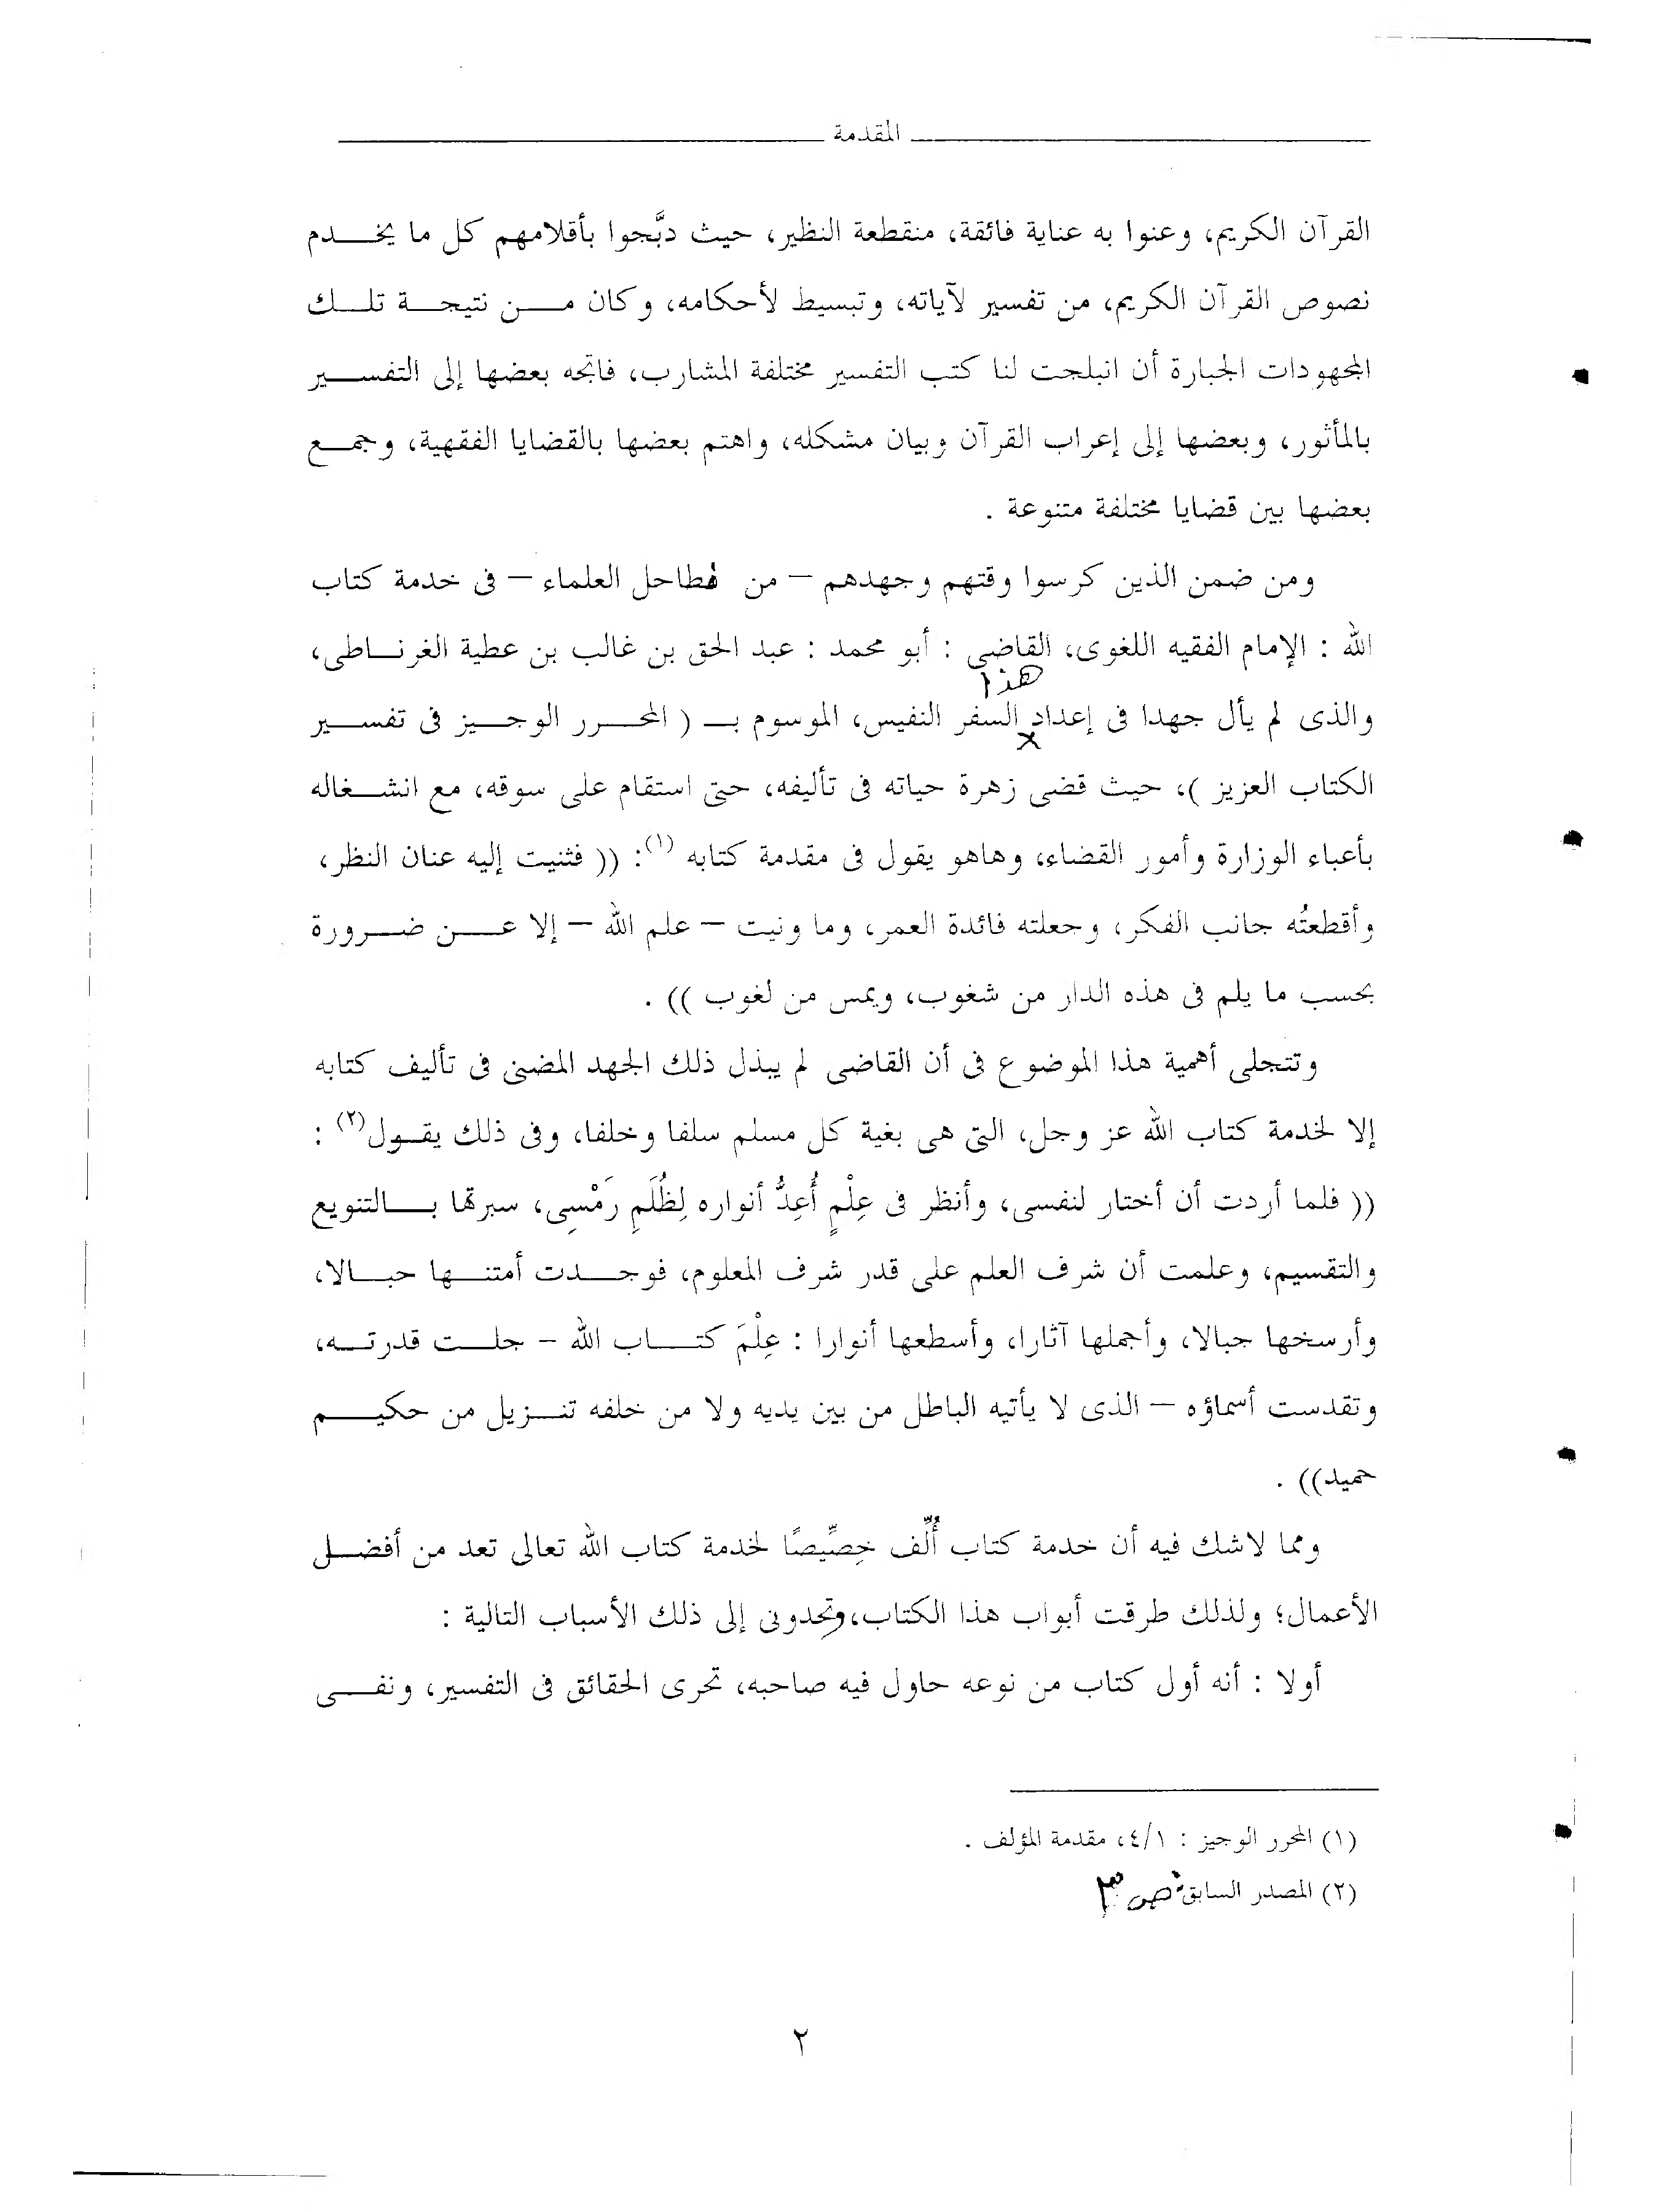 المقدمة
القرآن الكريم، وعنوا به عناية فائقة، منقطعة النظير، حيث دبَّجوا بأقلامهم كل ما يخدم
نصوص القرآن الكريم، من تفسير لآياته، وتبسيط لأحكامه، وكان من نتيجة تلك
المجهودات الجبارة أن انبلجت لنا كتب التفسير مختلفة المشارب، فاتجه بعضها إلى التفسير
بالمأثور، وبعضها إلى إعراب القرآن وبيان مشكله، واهتم بعضها بالقضايا الفقهية، وجمع
بعضها بين قضايا مختلفة متنوعة .
ومن ضمن الذين كرسوا وقتهم وجهدهم – من فطاحل العلماء – فى خدمة كتاب
الله : الإمام الفقيه اللغوى، القاضى : أبو محمد : عبد الحق بن غالب بن عطية الغرناطى،
هذا
والذى لم يأل جهدا فى إعداد السفر النفيس، الموسوم بـ ( المحرر الوجيز فى تفسير
الكتاب العزيز )، حيث قضى زهرة حياته فى تأليفه، حتى استقام على سوقه، مع انشغاله
بأعباء الوزارة وأمور القضاء، وهاهو يقول فى مقدمة كتابه (١): (( فثنيت إليه عنان النظر،
وأقطعتُه جانب الفكر، وجعلته فائدة العمر، وما ونيت – علم الله – إلا عن ضرورة
بحسب ما يلم فى هذه الدار من شغوب، ويمس من لغوب )) .
وتتجلى أهمية هذا الموضوع فى أن القاضى لم يبذل ذلك الجهد المضنى فى تأليف كتابه
إلا لخدمة كتاب الله عز وجل، التى هى بغية كل مسلم سلفا وخلفا، وفى ذلك يقول(٢) :
(( فلما أردت أن أختار لنفسى، وأنظر فى عِلْمٍ أُعِدُّ أنواره لِظُلَمِ رَمْسِى، سبرتها بالتنويع
والتقسيم، وعلمت أن شرف العلم على قدر شرف المعلوم، فوجدت أمتنها حبالا،
وأرسخها جبالا، وأجملها آثارا، وأسطعها أنوارا : عِلْمَ كتاب الله – جلت قدرته،
وتقدست أسماؤه – الذى لا يأتيه الباطل من بين يديه ولا من خلفه تنزيل من حكيم
حميد)) .
ومما لاشك فيه أن خدمة كتاب أُلِّف خِصِّيصًا لخدمة كتاب الله تعالى تعد من أفضل
الأعمال؛ ولذلك طرقت أبواب هذا الكتاب، وتحدونى إلى ذلك الأسباب التالية :
أولا : أنه أول كتاب من نوعه حاول فيه صاحبه، تحرى الحقائق فى التفسير، ونفى
(١) المحرر الوجيز : ٤/١، مقدمة المؤلف .
(٢) المصدر السابق: ص ٣
٢